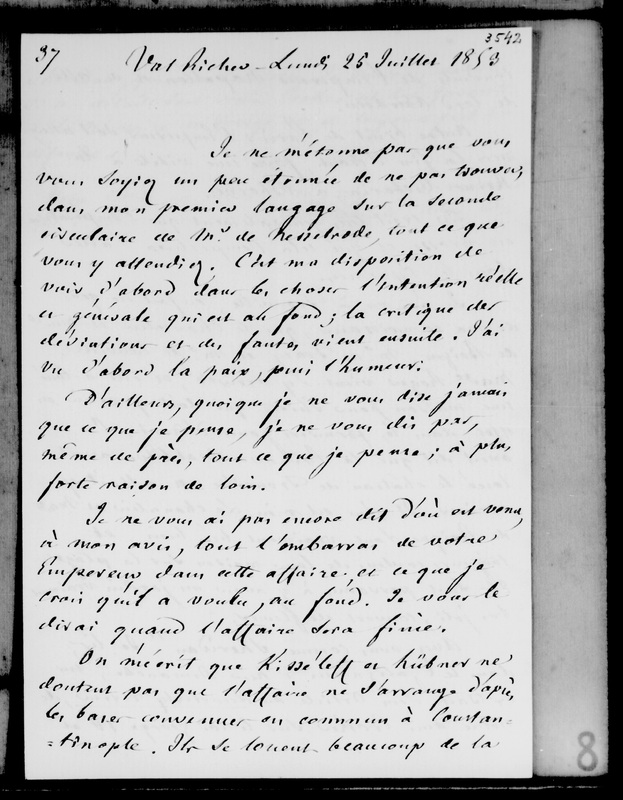 3542
37 Val Richer - Lundi 25 Juillet 1853
Je ne m'étonne pas que vous
vous soyiez un peu étonnée de ne pas trouver,
dans mon premier langage sur la seconde
circulaire de Mr. de Nesselrode, tout ce que
vous y attendiez. C'est ma disposition de
voir d'abord dans les choses l'intention réelle
et générale qui est au fond ; la critique des
déviations et des fautes vient ensuite. J'ai
vu d'abord la paix, puis l'humeur.
D'ailleurs, quoique je ne vous dise jamais
que ce que je pense, je ne vous dis pas,
même de près, tout ce que je pense ; à plus
forte raison de loin.
Je ne vous ai pas encore dit d'où est venu,
à mon avis, tout l'embarras de votre
Empereur dans cette affaire, et ce que je
crois qu'il a voulu, au fond. Je vous le
dirai quand l'affaire sera finie.
On m'écrit que Kisséleff et Hübner ne
doutent pas que l'affaire ne s'arrange d'après
les bases convenues en commun à Constan=
=tinople. Ils se louent beaucoup de la
8